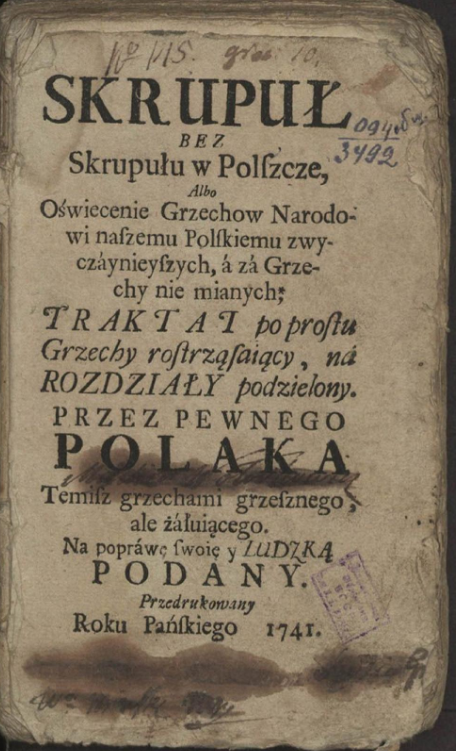 No 115.
SKRUPUŁ
BEZ
Skrupułu w Polſzcze,
Albo
Oświecenie Grzechow Narodo-
wi naſzemu Polſkiemu zwy-
czáynieyſzych, á zá Grze-
chy nie mianych;
TRAKTAT po proſtu
Grzechy roſtrząſaiący, ná
ROZDZIAŁY podzielony.
PRZEZ PEWNEGO
POLAKA
Temiſz grzechami grzeſznego,
ale żáłuiącego.
Na popráwę ſwoię y LUDZKĄ
PODANY.
Przedrukowany
Roku Pańſkiego 1741.
3492